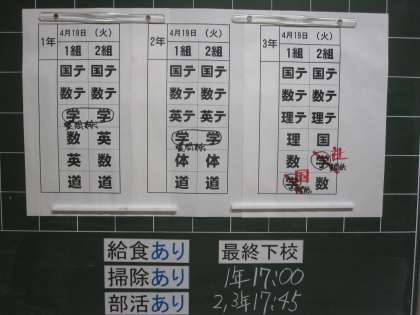 1年 4月19日 (火)
1組 2組
国テ 国テ
数テ 数テ
学 学
数 英
英 数
道 道
2年 4月19日 (火)
1組 2組
国テ 国テ
数テ 数テ
英テ 英テ
学 学
体 体
道 道
3年 4月19日 (火)
1組 2組
国テ 国テ
数テ 数テ
理テ 理テ
理 国
数 学 社
学 国 数
給食あり 最終下校
掃除あり 1年17:00
部活あり 2,3年17:45